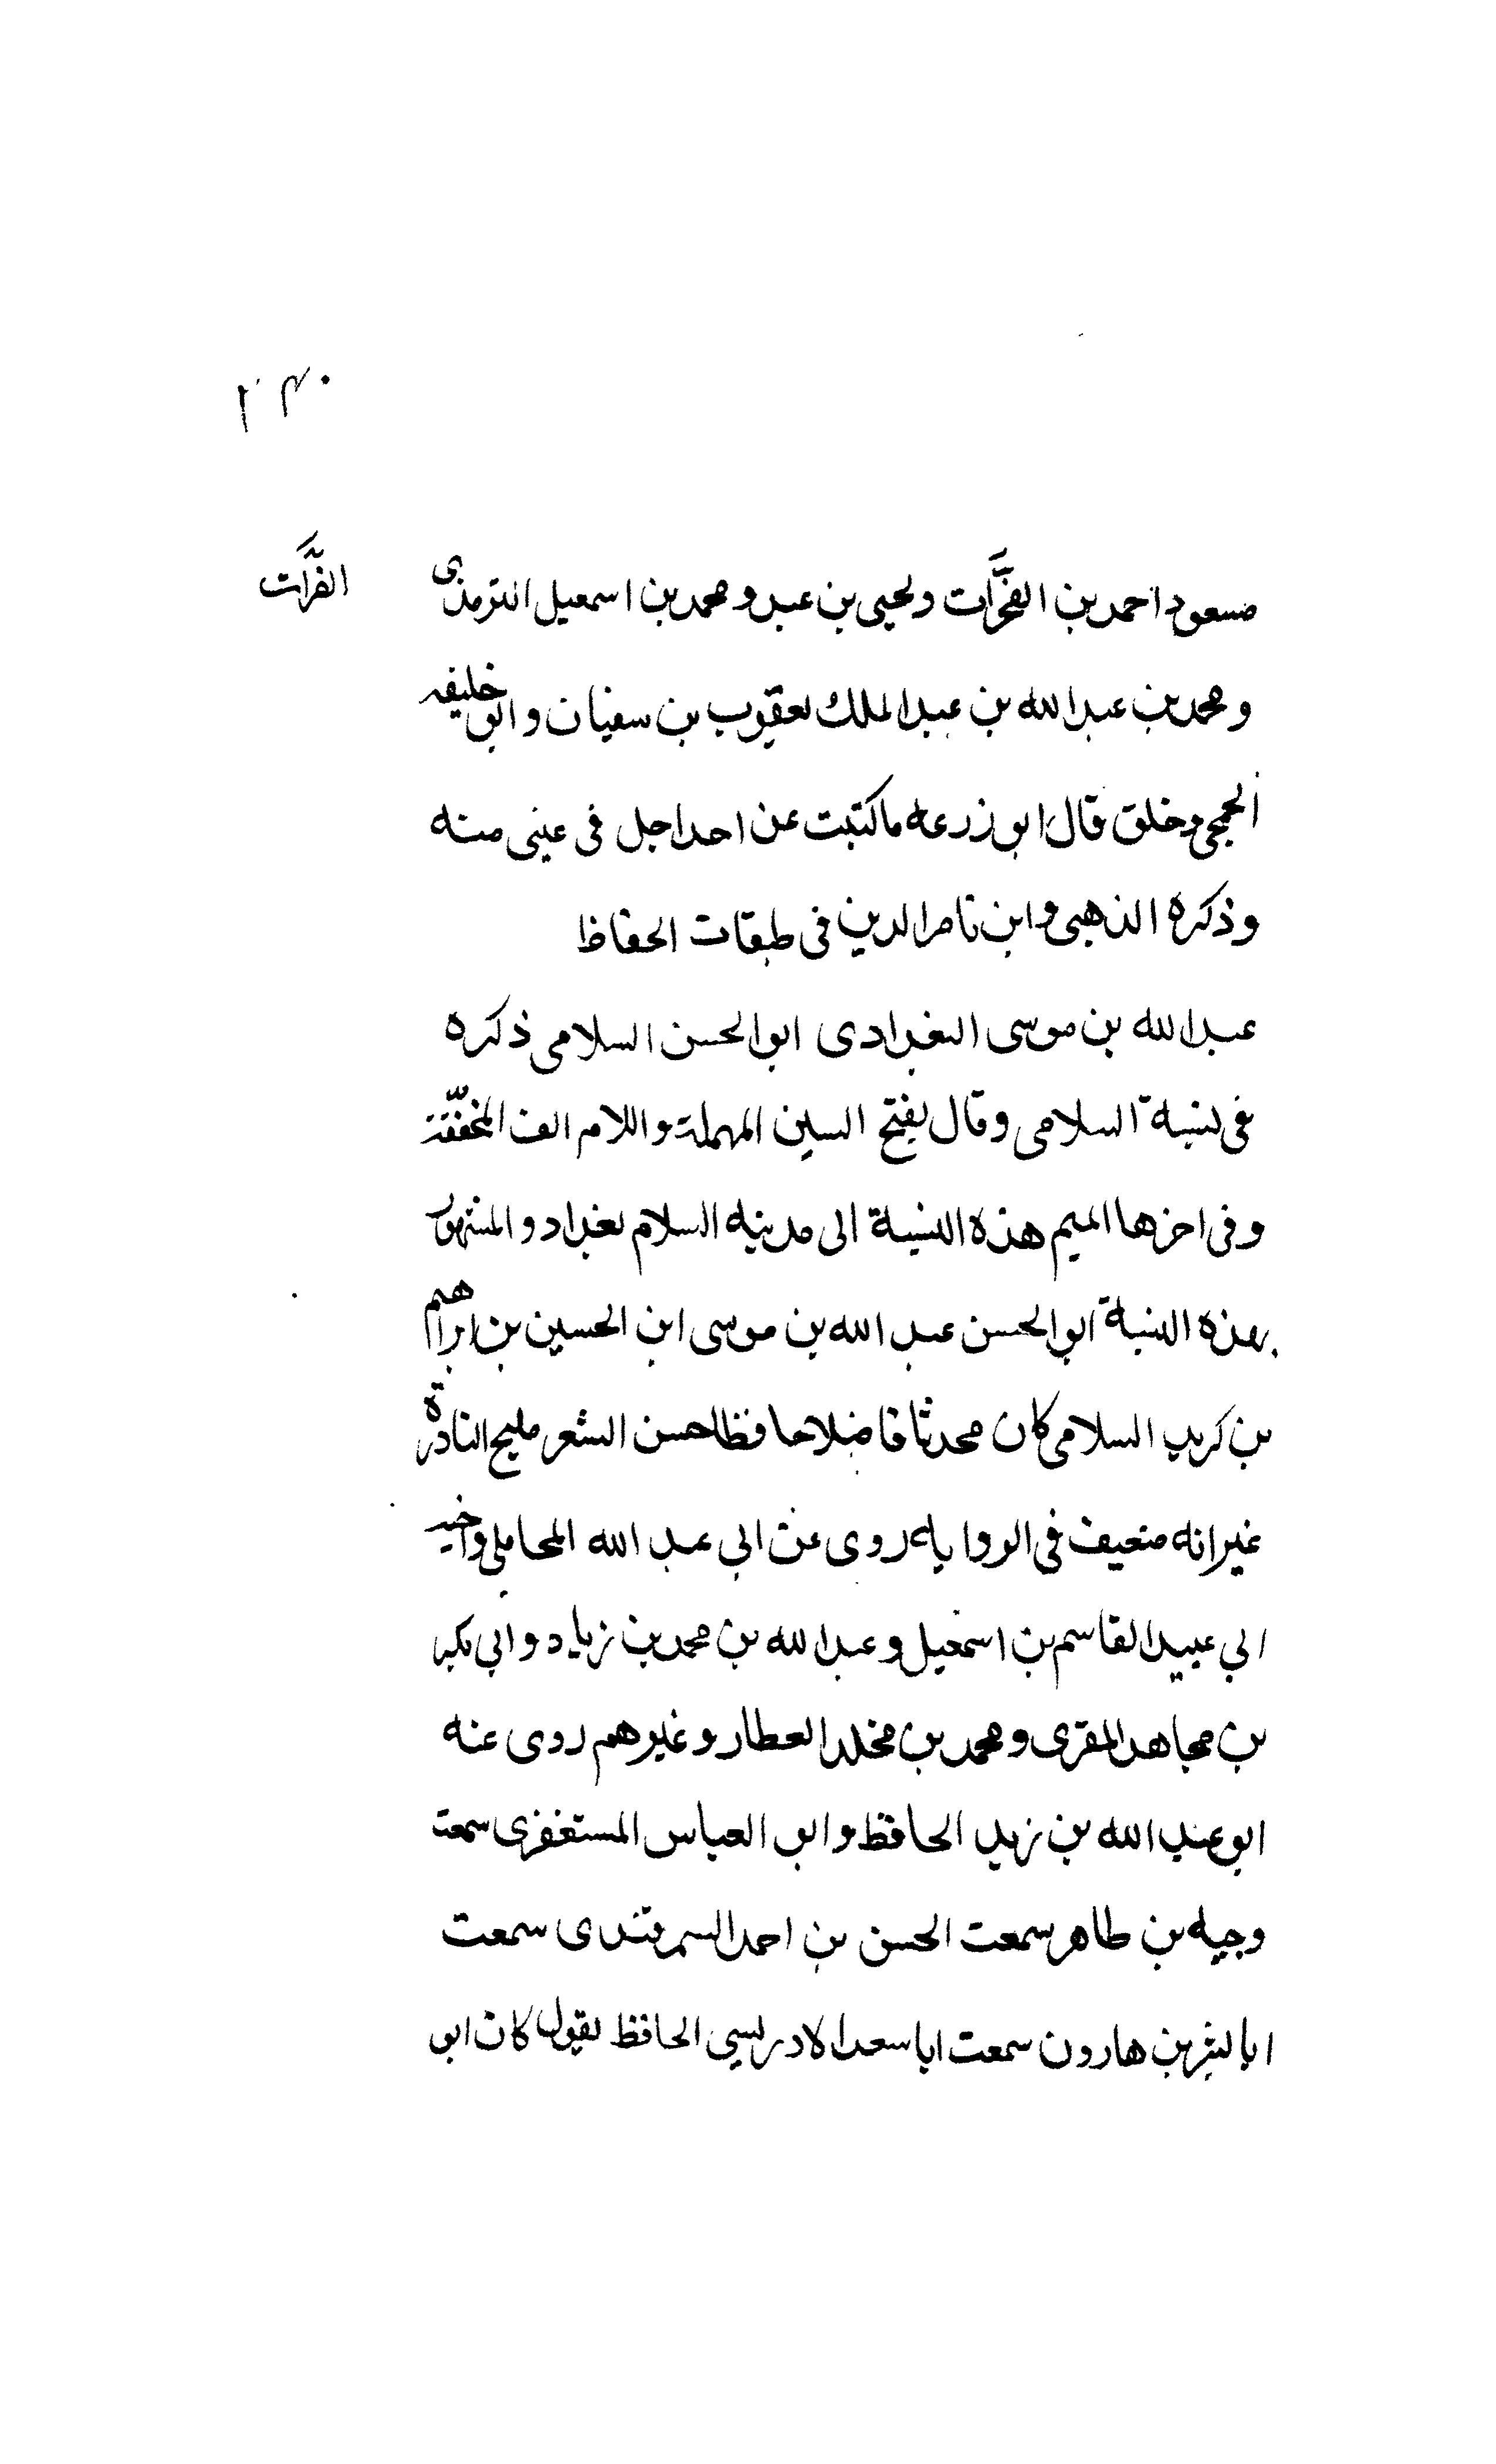 ٢٤٠
مسعود احمد بن الفرات ويحيى بن عبد و محمد بن اسمعيل الترمذى
الفرَّات
و محمد بن عبد الله بن عبد الملك يعقوب بن سفيان و ابو خليفه
الجمحى وخلق قال ابو زرعه ما كتبت عن احد اجل فى عينى منه
وذكره الذهبى وابن ناصر الدين فى طبقات الحفاظ
عبد الله بن موسى البغدادى ابو الحسن السلامى ذكره
فى نسبة السلامى وقال بفتح السين المهملة واللام الف المخففّة
وفى اخرها الميم هذه النسبة الى مدينه السلام بغداد و المشهور
بهذه النسبة ابو الحسن عبد الله بن موسى ابن الحسين بن ابراهيم
بن كريد السلامى كان محدثا فاضلا حافظا حسن الشعر مليح النادرة
غير انه ضعيف فى الروايه روى عن ابي عبد الله المحاملى واخيه
ابي عبيد القاسم بن اسمعيل و عبد الله بن محمد بن زياد و ابي بكر
بن مجاهد المقرى و محمد بن مخلد العطار و غيرهم روى عنه
ابو عبد الله بن زيد الحافظ و ابو العباس المستغفرى سمعت
وجيه بن طاهر سمعت الحسن بن احمد السمرقندى سمعت
ابا بشر بن هارون سمعت ابا سعد الادريسي الحافظ يقول كان ابو